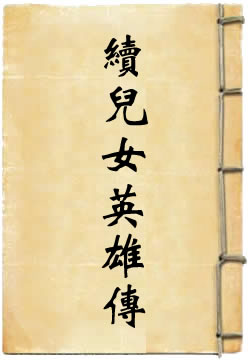 續兒女英雄傳